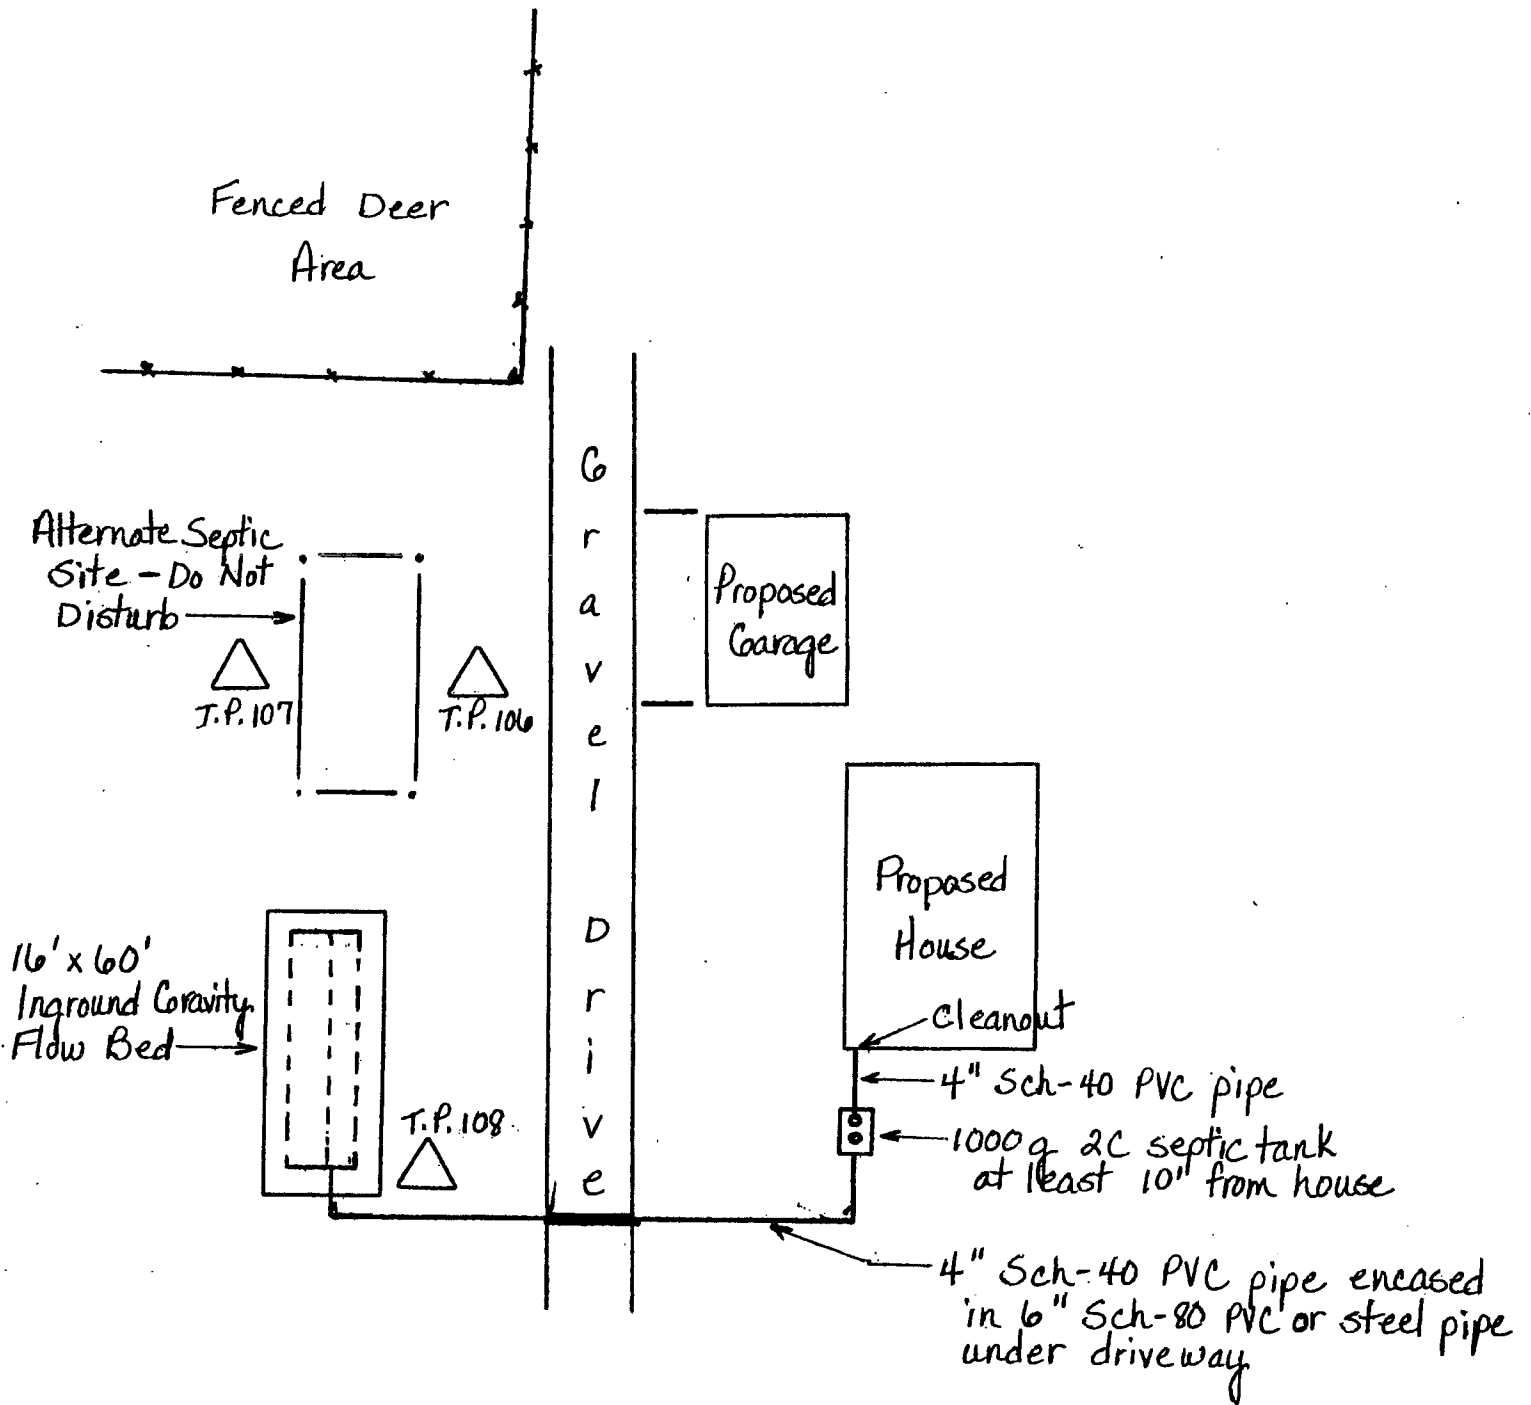 Fenced Deer
Area
Gravel Drive
Alternate Septic
Site - Do Not
Disturb
T.P. 107
T.P. 106
Proposed
Garage
Proposed
House
16' x 60'
Inground Gravity
Flow Bed
Cleanout
4" Sch-40 PVC pipe
T.P. 108
1000 g 2C septic tank
at least 10" from house
4" Sch-40 PVC pipe encased
in 6" Sch-80 PVC or steel pipe
under driveway